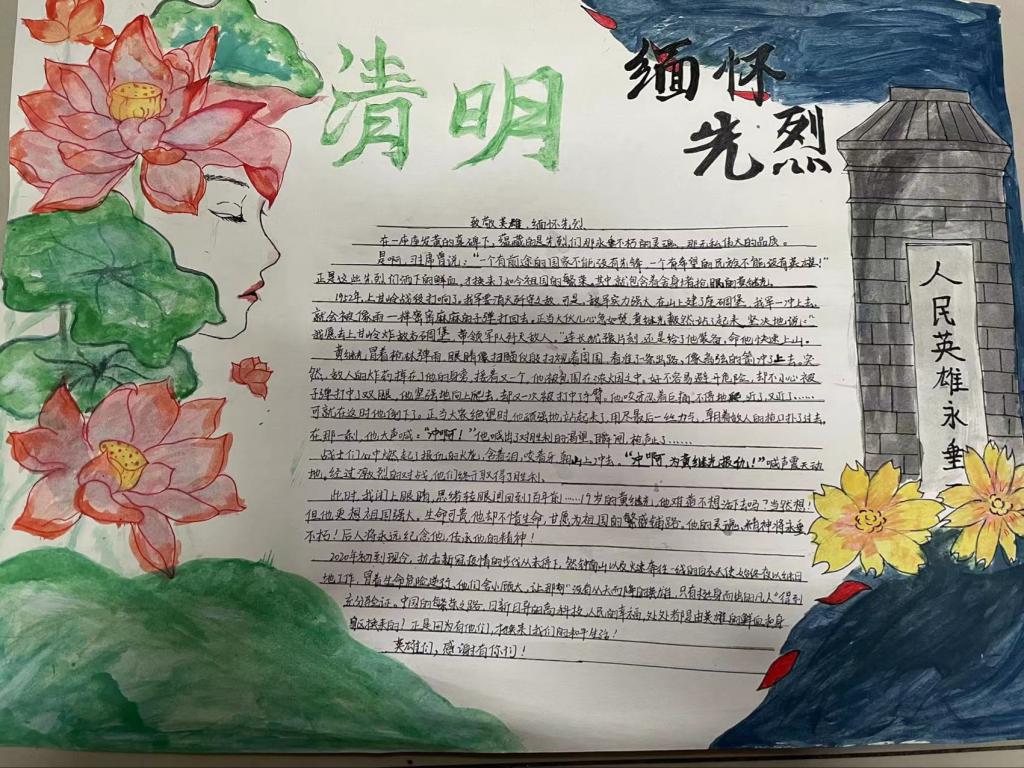 清明
缅怀
先烈
人民英雄永垂
致敬英雄,缅怀先烈
在一座座发黄的墓碑下,蕴藏的是先烈们那永垂不朽的灵魂,那无私伟大的品质。
是啊,习主席曾说:“一个有前途的国家不能没有先锋,一个有希望的民族不能没有英雄!”
正是这些先烈们洒下的鲜血,才换来了如今祖国的繁荣,其中就包含着舍身堵抢眼的黄继光。
1952年上甘岭战役打响了,我军要消灭守敌,可是,敌军实力强大在山上建了座碉堡,我军一冲上去,
就会被像雨一样密密麻麻的子弹打回去。正当大伙儿心急如焚,黄继光毅然站了起来,坚决地说:“
我愿去上甘岭炸敌方碉堡,带领军队歼灭敌人。”连长犹豫片刻,还是给了他装备,命他快速上山。
黄继光冒着枪林弹雨,眼睛像扫瞄仪般扫视着周围,看准了条出路,像离弦的箭冲了上去,突
然,敌人的炸药掉在了他的身旁,接着又一个,他被包围在浓火烟之中,好不容易避开危险,却不小心被
子弹打中了双腿,他坚强地向上爬去,却又一次被打中了手臂,他咬牙忍着巨痛,不停地爬,近了,又近了……
可就在这时他倒下了。正当大家绝望时,他顽强地站起来了,用尽最后一丝力气,朝着敌人的抢口扑了过去,
在那一刹,他大声喊:“冲啊!”他喊出了对胜利的渴望,瞬间,枪声止了……
战士们心中燃起了报仇的火龙,含着泪,咬着牙朝山上冲去。“冲啊,为黄继光报仇!”喊声震天动
地,经过激烈的对战,他们终于取得了胜利。
此时,我闭上眼睛,思绪转眼间回到了百年前……19岁的黄继光,他难道不想活下去吗?当然想!
但他更想祖国强大。生命可贵,他却不惜生命,甘愿为祖国的繁盛铺路。他的灵魂、精神将永垂
不朽!后人将永远纪念他,传承他的精神!
2020年初到现今,抗击新冠疫情的步伐从未停下,然钟南山以及火速奔往一线的白衣天使始终夜以继日
地工作,冒着生命危险逆行,他们舍小顾大,让那句“没有从天而降的英雄,只有挺身而出的凡人”得到
充分验证。中国的繁荣之路,日新月异的高科技,人民的幸福,处处都是由英雄的鲜血和身
躯换来的!正是因为有他们,才换来了我们的和平生活!
英雄们,感谢有你们!